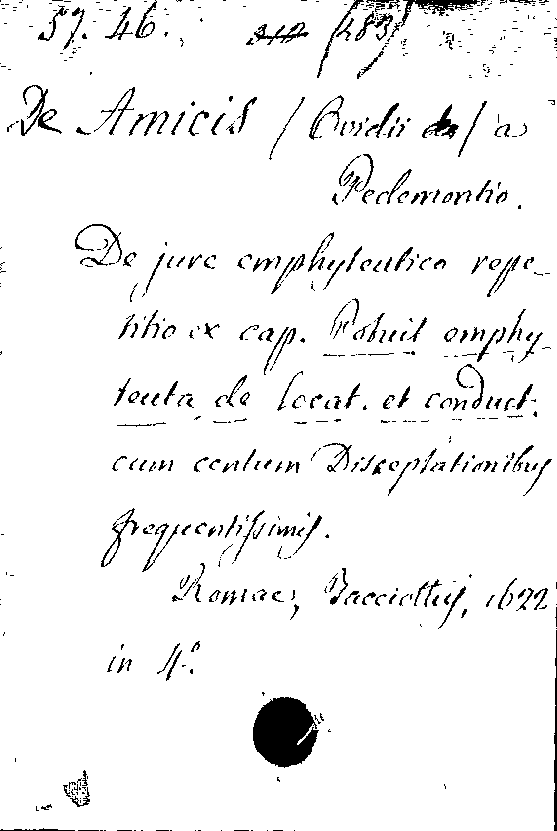 57. 46. 212 (283)
De Amicis / Ovidii de / a
Pedemontio.
De jure emphyteutico repe-
titio ex cap. Potuit emphy-
teuta de locat. et conduct.
cum centum Disceptationibus
frequentissimis.
Romae, Bacciottus, 1622
in 4º.